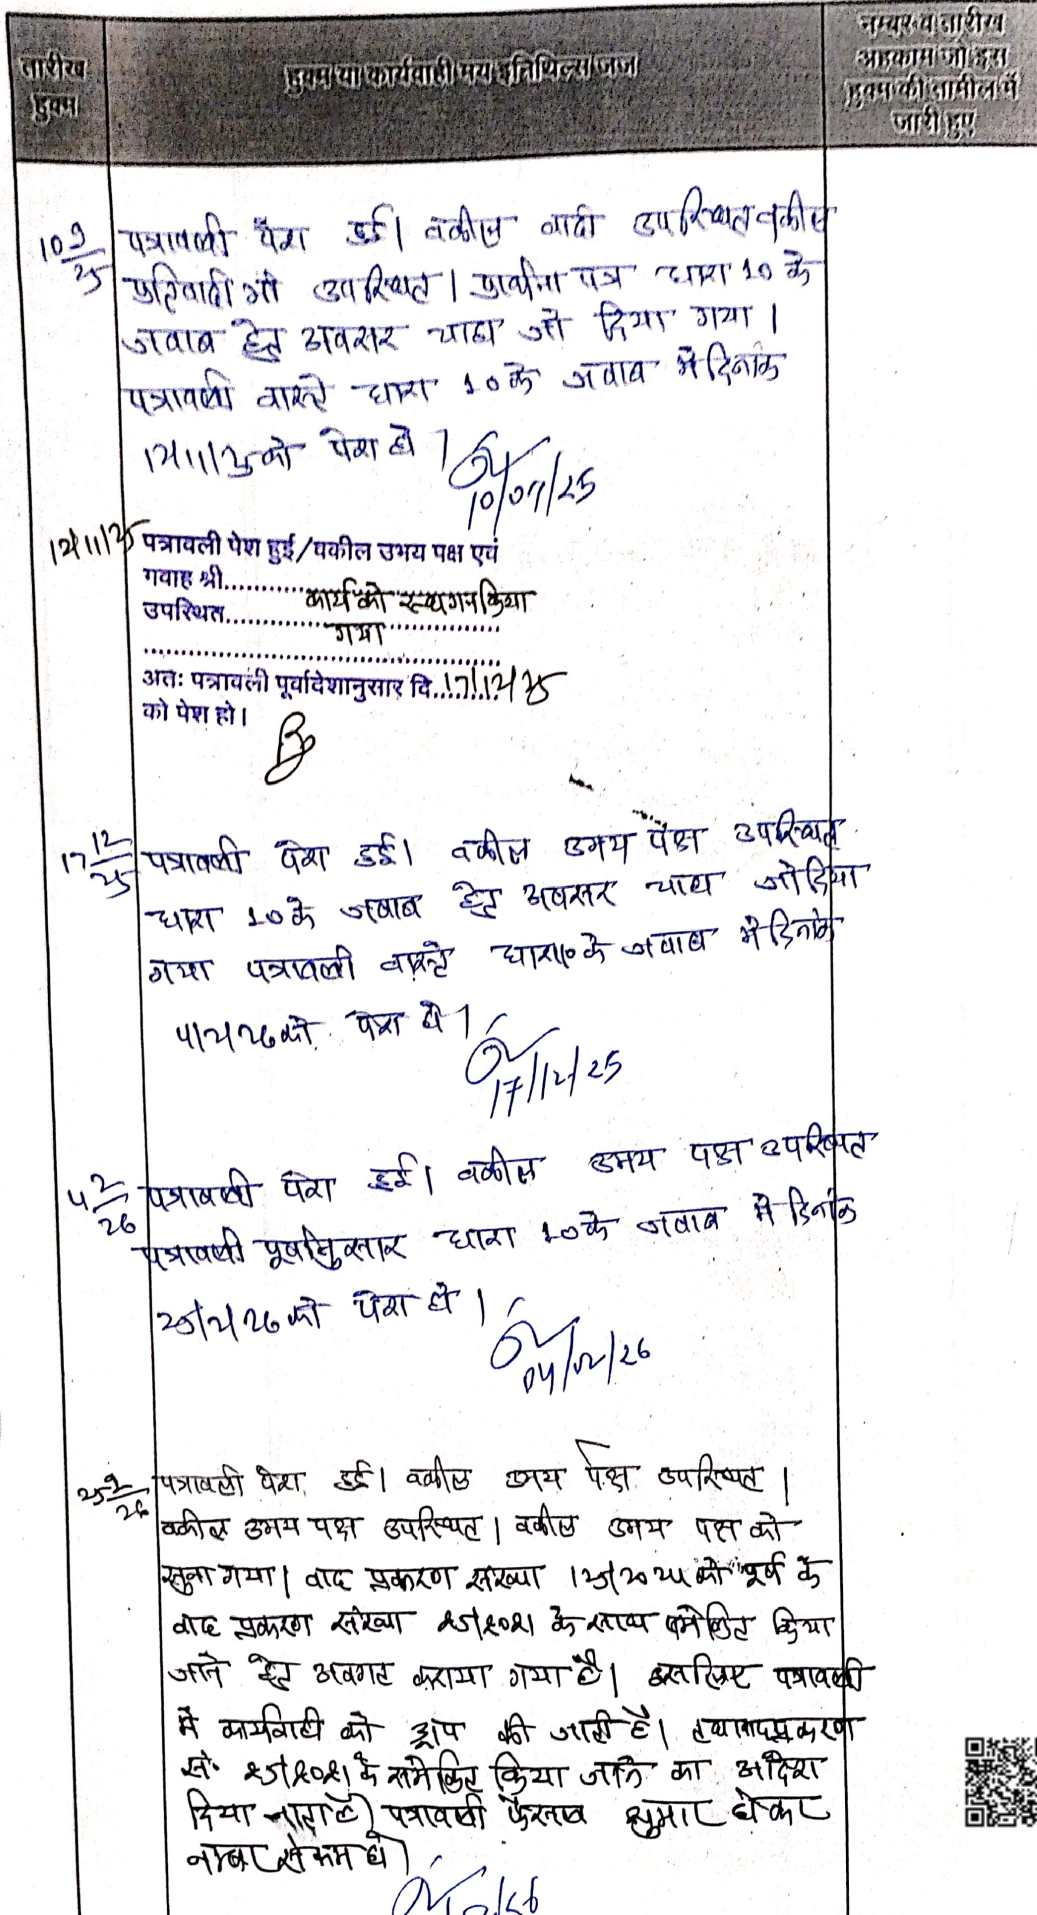 तारीख
हुक्म
हुक्म या कार्यवाही मय इनिशियल्स जज
नम्बर व तारीख
अहकाम जो इस
हुक्म की तामील में
जारी हुए
10 9/25 पत्रावली पेश हुई। वकील वादी उपस्थित वकील
प्रतिवादी भी उपस्थित। प्रार्थना पत्र धारा 10 के
जवाब हेतु अवसर चाहा जो दिया गया।
पत्रावली वास्ते धारा 10 के जवाब में दिनांक
12/11/25 को पेश हो।
10/09/25
12/11/25 पत्रावली पेश हुई/वकील उभय पक्ष एवं
गवाह श्री
उपस्थित कार्य को स्थगन किया
गया
अतः पत्रावली पूर्वादेशानुसार दि. 17/12/25
को पेश हो।
17 12/25 पत्रावली पेश हुई। वकील उभय पक्ष उपस्थित
धारा 10 के जवाब हेतु अवसर चाहा जो दिया
गया पत्रावली वास्ते धारा 10 के जवाब में दिनांक
4/2/26 को पेश हो।
17/12/25
4 2/26 पत्रावली पेश हुई। वकील उभय पक्ष उपस्थित
पत्रावली पूर्वानुसार धारा 10 के जवाब में दिनांक
25/2/26 को पेश हो।
04/02/26
25 2/26 पत्रावली पेश हुई। वकील उभय पक्ष उपस्थित।
वकील उभय पक्ष उपस्थित। वकील उभय पक्ष को
सुना गया। वाद प्रकरण संख्या 125/2024 को पूर्व के
वाद प्रकरण संख्या 25/2021 के साथ समेकित किया
जाने हेतु अवगत कराया गया है। इसलिए पत्रावली
में कार्यवाही को ड्रॉप की जाती है। तथा वाद प्रकरण
सं. 25/2021 के समेकित किया जाने का आदेश
दिया जाता है। पत्रावली फैसल शुमार होकर
नम्बर से कम हो।